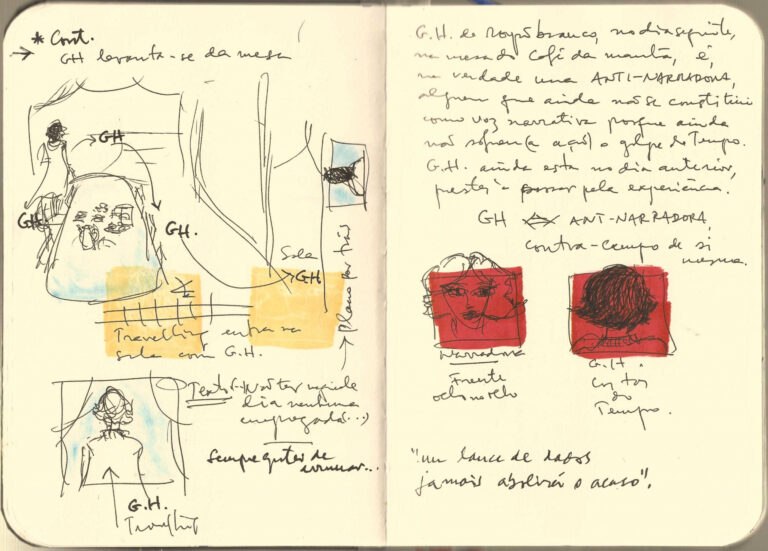 * Cont.
→ GH levanta-se da mesa
GH
GH.
GH.
Sala
GH
Plano por trás
Travelling entra na
sala com G.H.
Texto (-Não ter naquele
dia nenhuma
empregada...)
Sempre gostei de
arrumar...
G.H.
Travelling
G.H. de roupão branco, no dia seguinte,
na mesa do café da manhã, é,
na verdade uma ANTI-NARRADORA,
alguém que ainda não se constituiu
como voz narrativa porque ainda
não sofreu (a ação) o golpe do Tempo.
G.H. ainda está no dia anterior,
prestes a passar pela experiência.
GH ⇔ ANTI-NARRADORA
contra-campo de si
mesma.
Narradora
Frente
G.H.
do
Tempo.
"um lance de dados
jamais abolirá o acaso".